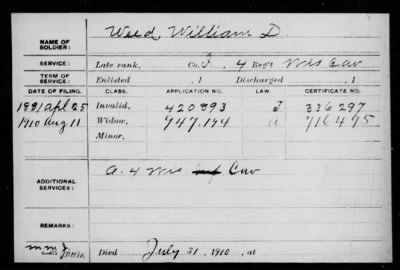 NAME OF SOLDIER: Weed, William D.
SERVICE: Late rank, Co. F, 4 Reg't Wis Cav
TERM OF SERVICE: Enlisted , 1 Discharged , 1
DATE OF FILING. CLASS. APPLICATION NO. LAW. CERTIFICATE NO.
1881 Apl 25 Invalid, 420893 J 336297
1910 Aug 11 Widow, 947,194 a 716475
Minor,
ADDITIONAL SERVICES: a. 4 Wis Inf Cav
REMARKS:
Died July 21, 1910, at